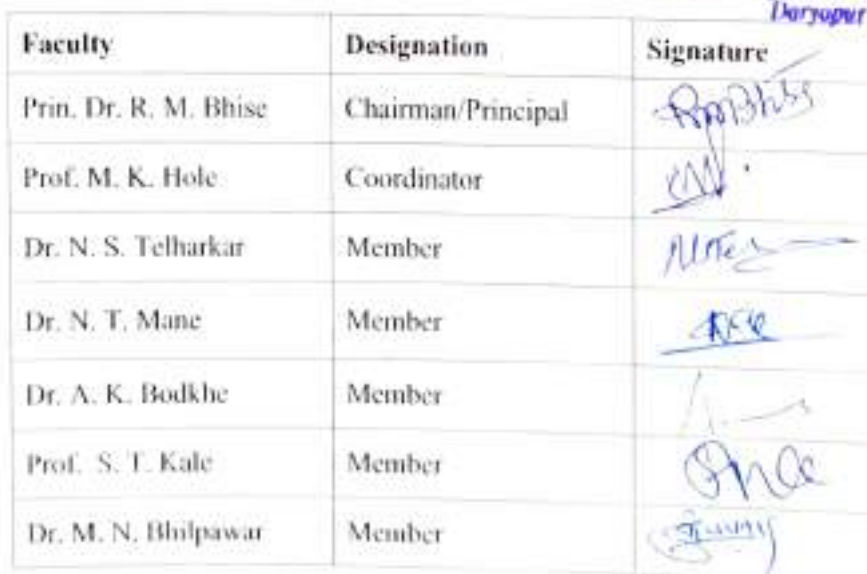 Daryapur
Faculty Designation Signature
Prin. Dr. R. M. Bhise Chairman/Principal RMBhise
Prof. M. K. Hole Coordinator
Dr. N. S. Telharkar Member
Dr. N. T. Mane Member
Dr. A. K. Bodkhe Member
Prof. S. T. Kale Member
Dr. M. N. Bhilpawar Member